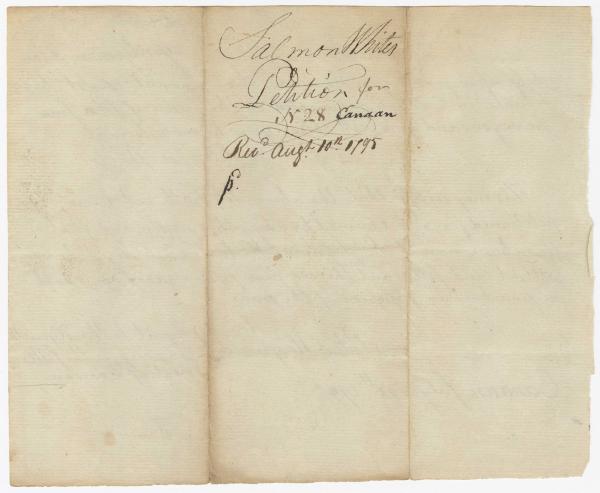 Salmon Whites
Petition for
N 28 Canaan
Recd Augt 10th 1795
pd.